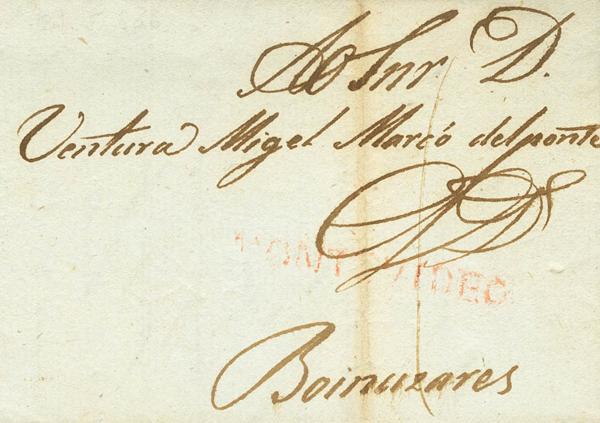 Ao Snr. D.
Ventura Migel Marcó delponte
MONTEVIDEO
Boinuzares